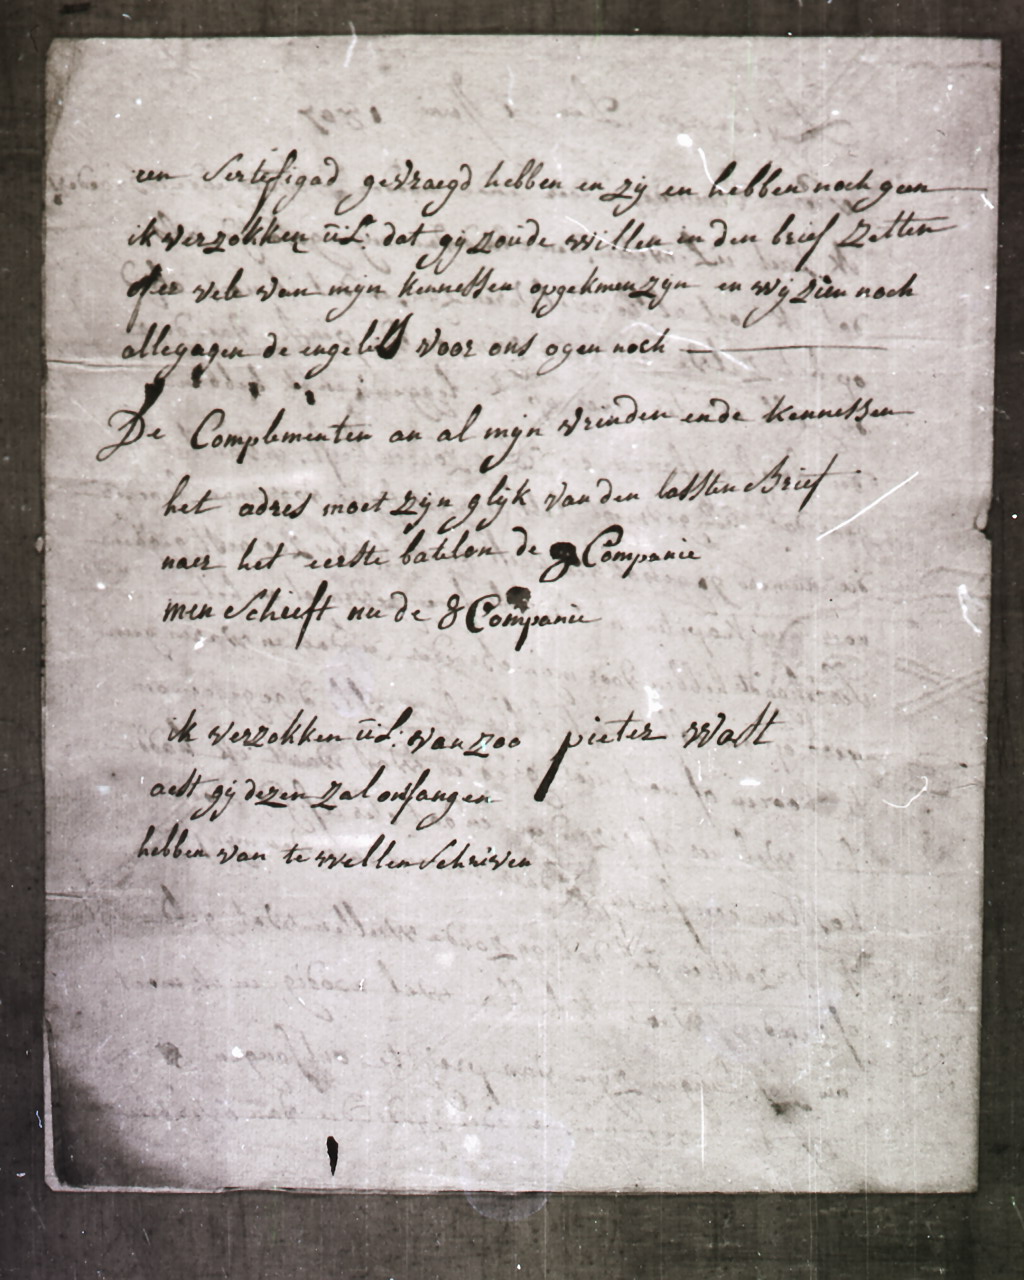 een Sertifigad gevraegd hebben en zij en hebben noch geen
ik verzokken üL: dat gij zoude willen in den brief zetten
ofter vele van mijn kennessen opgekmen zijn en wij zien noch
allegagen de engelss voor ons ogen noch
De Complementen an al mijn vrinden ende kennessen
het adres moet zijn glijk van den lassten Brief
naer het eerste batelon de 8 Companie
men Schrift nu de 8 Companie
ik verzokken üL: van zoo pieter Wadt
aest gij dezen zal onfangen
hebben van te wellen Schriven